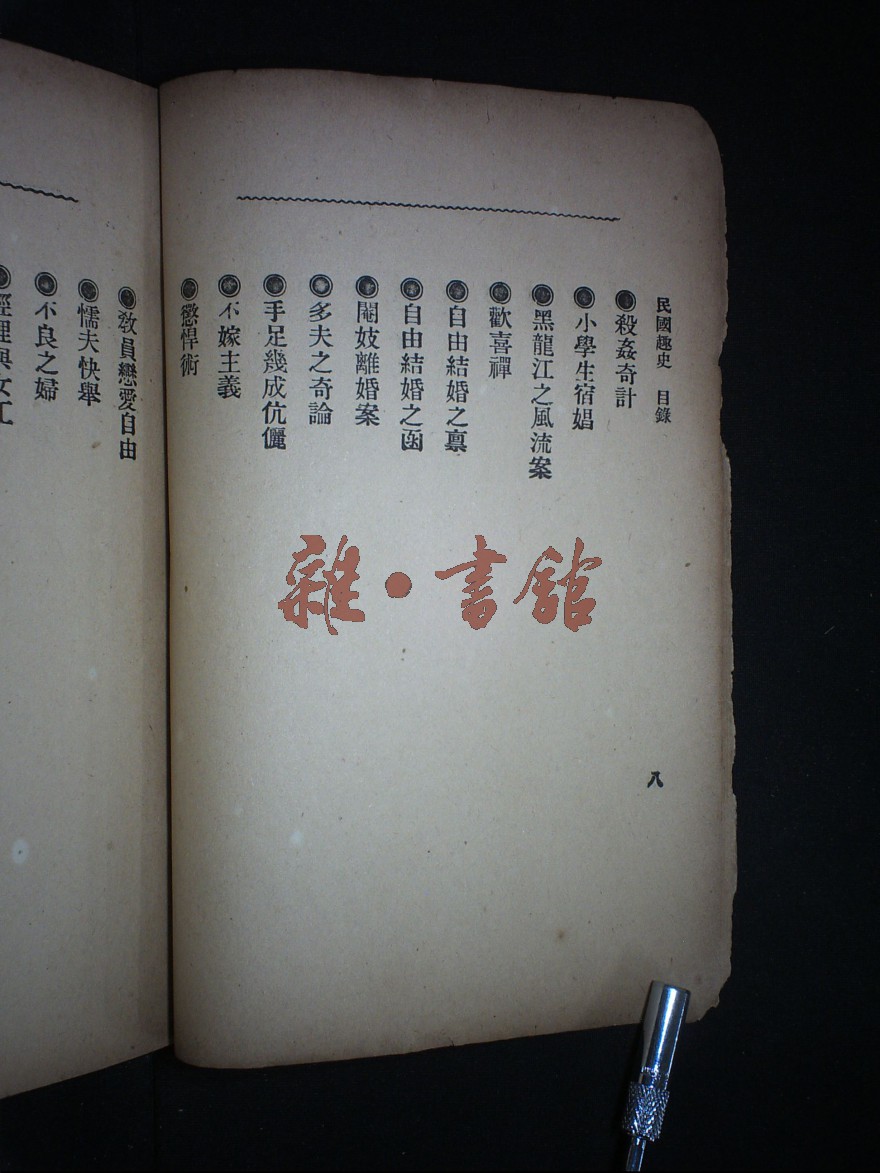 民國趣史　目錄
八
◉殺姦奇計
◉小學生宿娼
◉黑龍江之風流案
◉歡喜禪
◉自由結婚之稟
◉自由結婚之函
◉閹妓離婚案
◉多夫之奇論
◉手足幾成伉儷
◉不嫁主義
◉懲悍術
◉教員戀愛自由
◉懦夫快舉
◉不良之婦
◉經理與女工
雜·書館